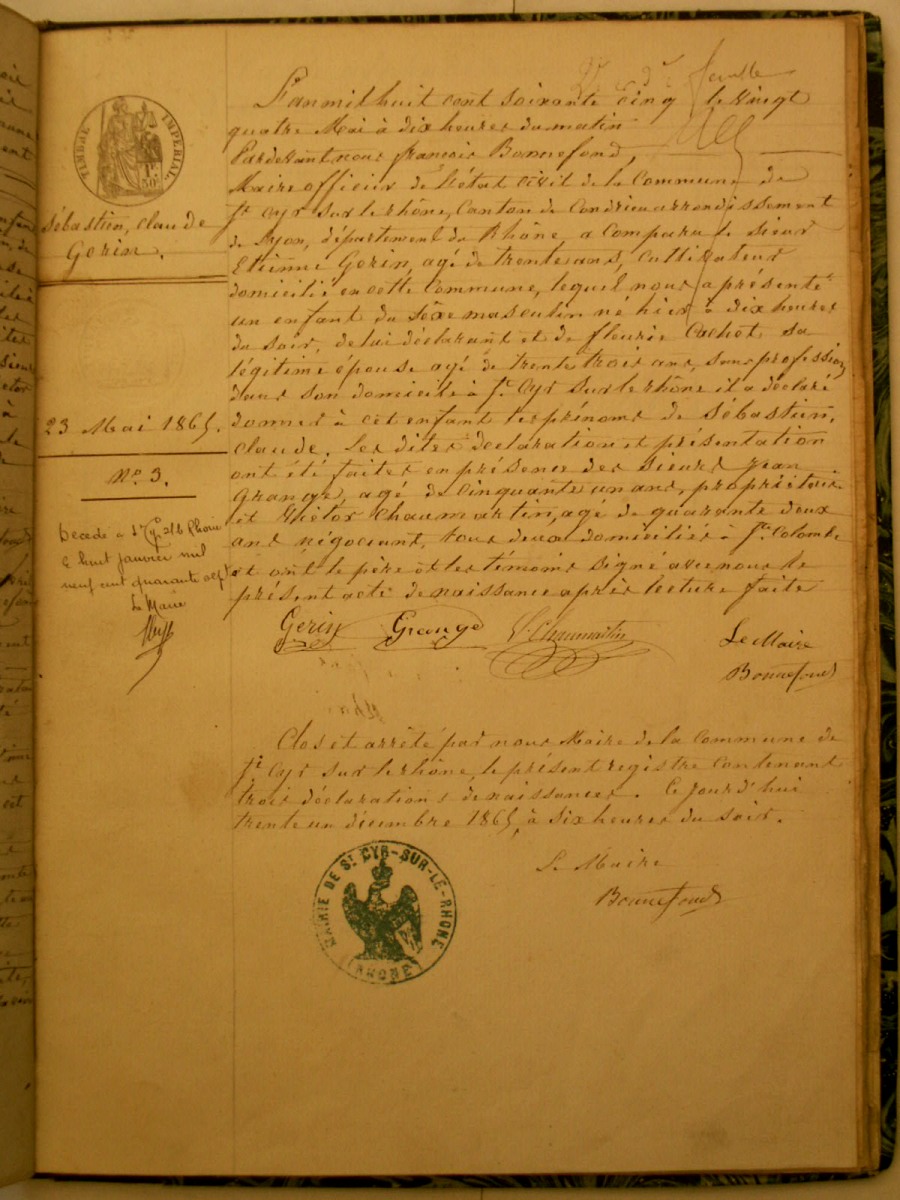 TIMBRE IMPERIAL
1F 50c
Sébastien, Claude
Gerin.
23 Mai 1865.
No 3.
Décédé à St Cyr s/le Rhône
le huit janvier mil
neuf cent quarante
Le Maire
feuille
L'an mil huit cent soixante cinq le vingt
quatre Mai à dix heures du matin
Pardevant nous françois Bonnefond,
Maire officier de l'état civil de la Commune de
St Cyr sur le rhône, Canton de Condrieu arrondissement
de Lyon, département du Rhône a Comparu le sieur
Etienne Gerin, agé de trente ans, cultivateur
domicilié en cette Commune, lequel nous a présenté
un enfant du sèxe masculin né hier à dix heures
du soir, de lui déclarant et de fleurie Cachet sa
légitime épouse agé de trente trois ans, sans profession
dans son domicile à St Cyr sur le rhône il a déclaré
donner à cet enfant les prénoms de Sébastien,
claude. Les dites déclaration et présentation
ont été faites en présence des sieurs Jean
Grange, agé de cinquante un ans, propriétaire
et Victor Chaumartin, agé de quarante deux
ans négociant, tous deux domiciliés à Ste Colombe
et ont le père et les témoins signé avec nous le
présent acte de naissance après lecture faite
Gerin Grange V. Chaumartin Le Maire
Bonnefond
Clos et arrêté par nous Maire de la Commune de
St Cyr sur le rhône, le présent registre contenant
trois déclarations de naissances. Ce jourd'hui
trente un décembre 1865, à six heures du soir.
Le Maire
Bonnefond
MAIRIE DE ST CYR-SUR-LE-RHONE
(RHONE)